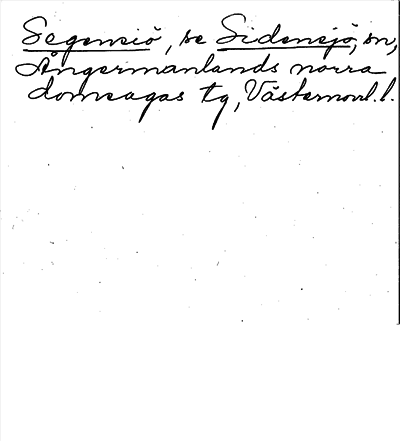 Segensiö, se Sidensjö, sn,
Ångermanlands norra
domsagas tg, Västernorrl.l.